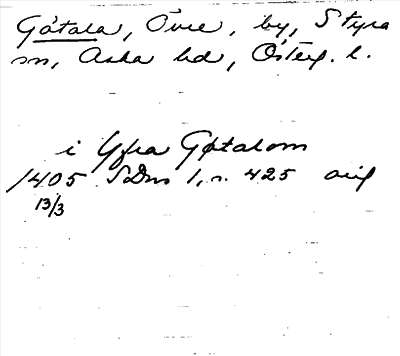 Gåtala, Övre, by, Styra
sn, Aska hd, Östergl.
i Yfra Gøtalom
1405 SDns 1, n. 425 orig
13/3